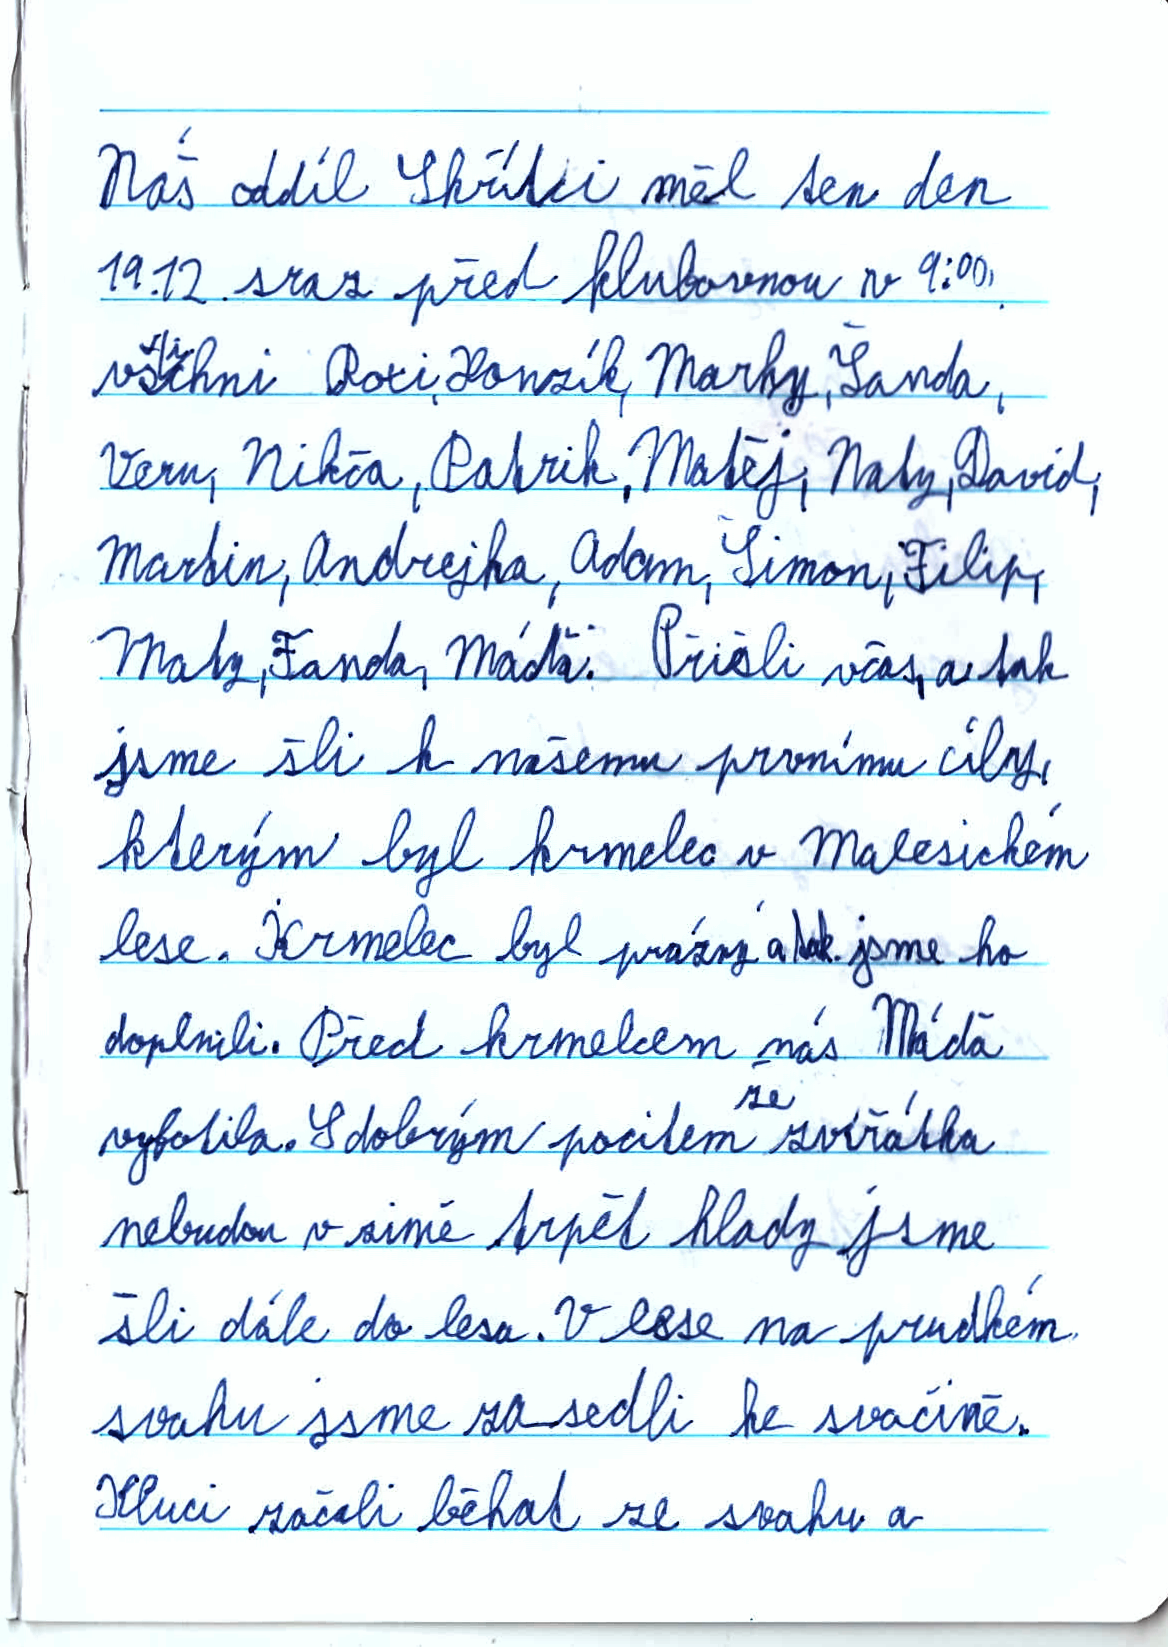 Náš oddíl Skřítci měl ten den
19.12. sraz před klubovnou v 9:00.
všichni Roxi, Honzík, Marky, Šanda,
Veru, Nikča, Patrik, Matěj, Naty, David,
Martin, Andrejka, Adam, Šimon, Filip,
Maty, Fanda, Máďa. Přišli včas, a tak
jsme šli k našemu prvnímu cíly,
kterým byl krmelec v Malesickém
lese. Krmelec byl prázný a tak jsme ho
doplnili. Před krmelcem nás Máďa
vyfotila. S dobrým pocitem že zvířátka
nebudou v zimě trpět hlady jsme
šli dále do lesa. V lese na prudkém
svahu jsme zasedli ke svačině.
Kluci začali běhat ze svahu a